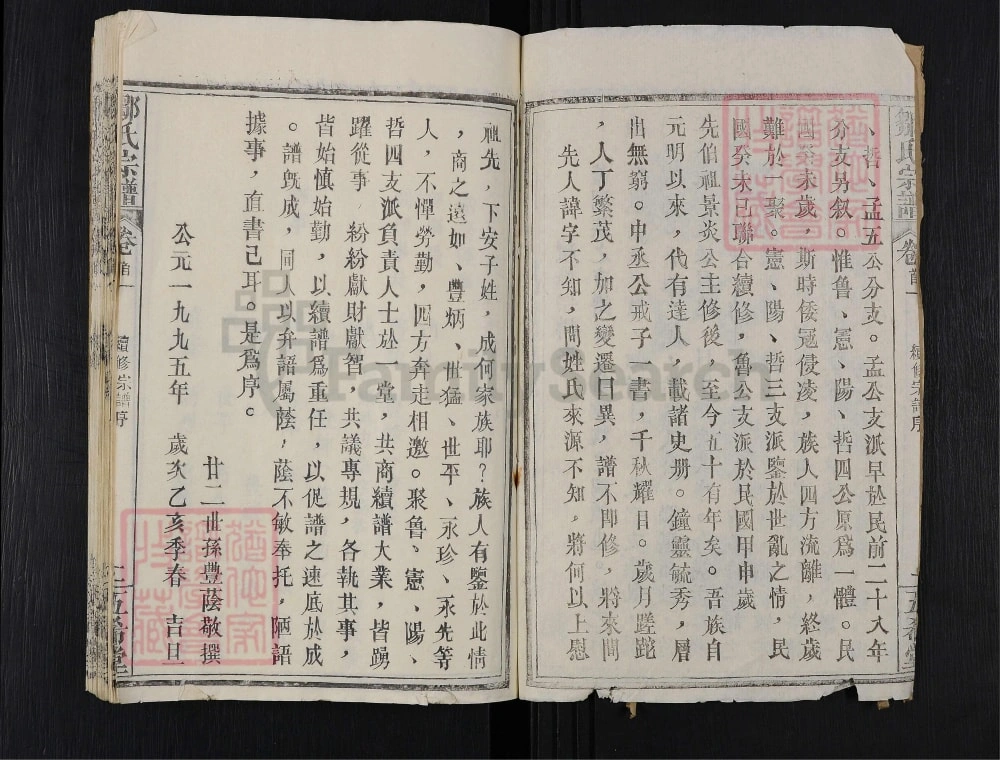 鄒氏宗譜 卷首一 續修宗譜序 五希堂
、哲、孟五公分支。孟公支派早於民前二十八年
分支另叙。惟魯、憲、陽、哲四公原爲一體。民
國癸未歲，斯時倭寇侵凌，族人四方流離，終歲
難於一聚。憲、陽、哲三支派鑒於世亂之情，民
國癸未已聯合續修，魯公支派於民國甲申歲
先伯祖景炎公主修後，至今五十有年矣。吾族自
元明以來，代有達人，載諸史册。鐘靈毓秀，層
出無窮。中丞公戒子一書，千秋耀目。歲月蹉跎
，人丁繁茂，加之變遷日異，譜不即修，將來問
先人諱字不知，問姓氏來源不知，將何以上慰
祖先，下安子姓，成何家族耶？族人有鑒於此情
，商之遠如、豐炳、世猛、世平、永珍、永先等
人，不憚勞勤，四方奔走相邀。聚魯、憲、陽、
哲四支派負責人士於一堂，共商續譜大業，皆踴
躍從事，紛紛獻財獻智，共議專規，各執其事，
皆始慎始勤，以續譜爲重任，以促譜之速底於成
。譜既成，同人以弁語屬蔭，蔭不敏奉托，陋語
據事，直書己耳。是爲序。
廿二世孫豐蔭敬撰
公元一九九五年 歲次乙亥季春 吉旦
鄒氏宗譜 卷首一 續修宗譜序 五希堂
FamilySearch